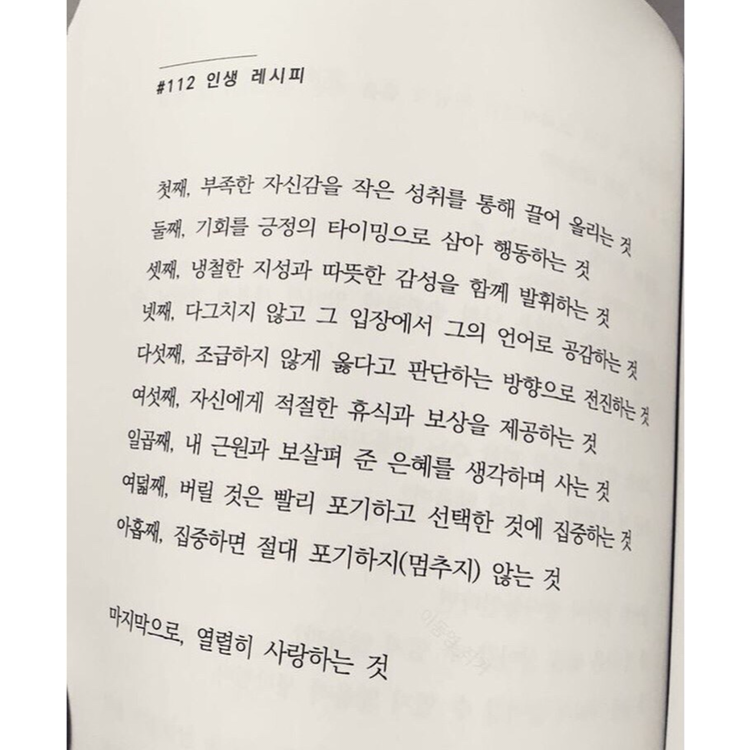 #112 인생 레시피
첫째, 부족한 자신감을 작은 성취를 통해 끌어 올리는 것
둘째, 기회를 긍정의 타이밍으로 삼아 행동하는 것
셋째, 냉철한 지성과 따뜻한 감성을 함께 발휘하는 것
넷째, 다그치지 않고 그 입장에서 그의 언어로 공감하는 것
다섯째, 조급하지 않게 옳다고 판단하는 방향으로 전진하는 것
여섯째, 자신에게 적절한 휴식과 보상을 제공하는 것
일곱째, 내 근원과 보살펴 준 은혜를 생각하며 사는 것
여덟째, 버릴 것은 빨리 포기하고 선택한 것에 집중하는 것
아홉째, 집중하면 절대 포기하지(멈추지) 않는 것
마지막으로, 열렬히 사랑하는 것